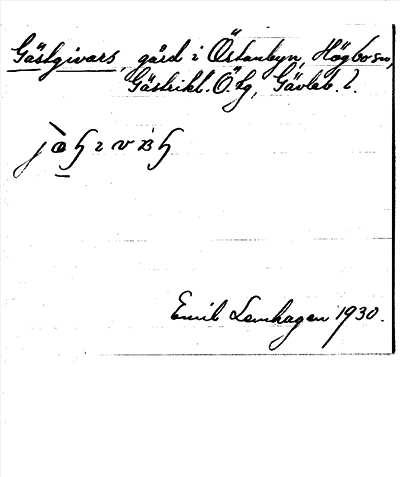 Gästgivars, gård i Östanbyn, Högbo sn,
Gästrikl. Ö. tg, Gävleb. l.
Emil Lenhagen 1930.